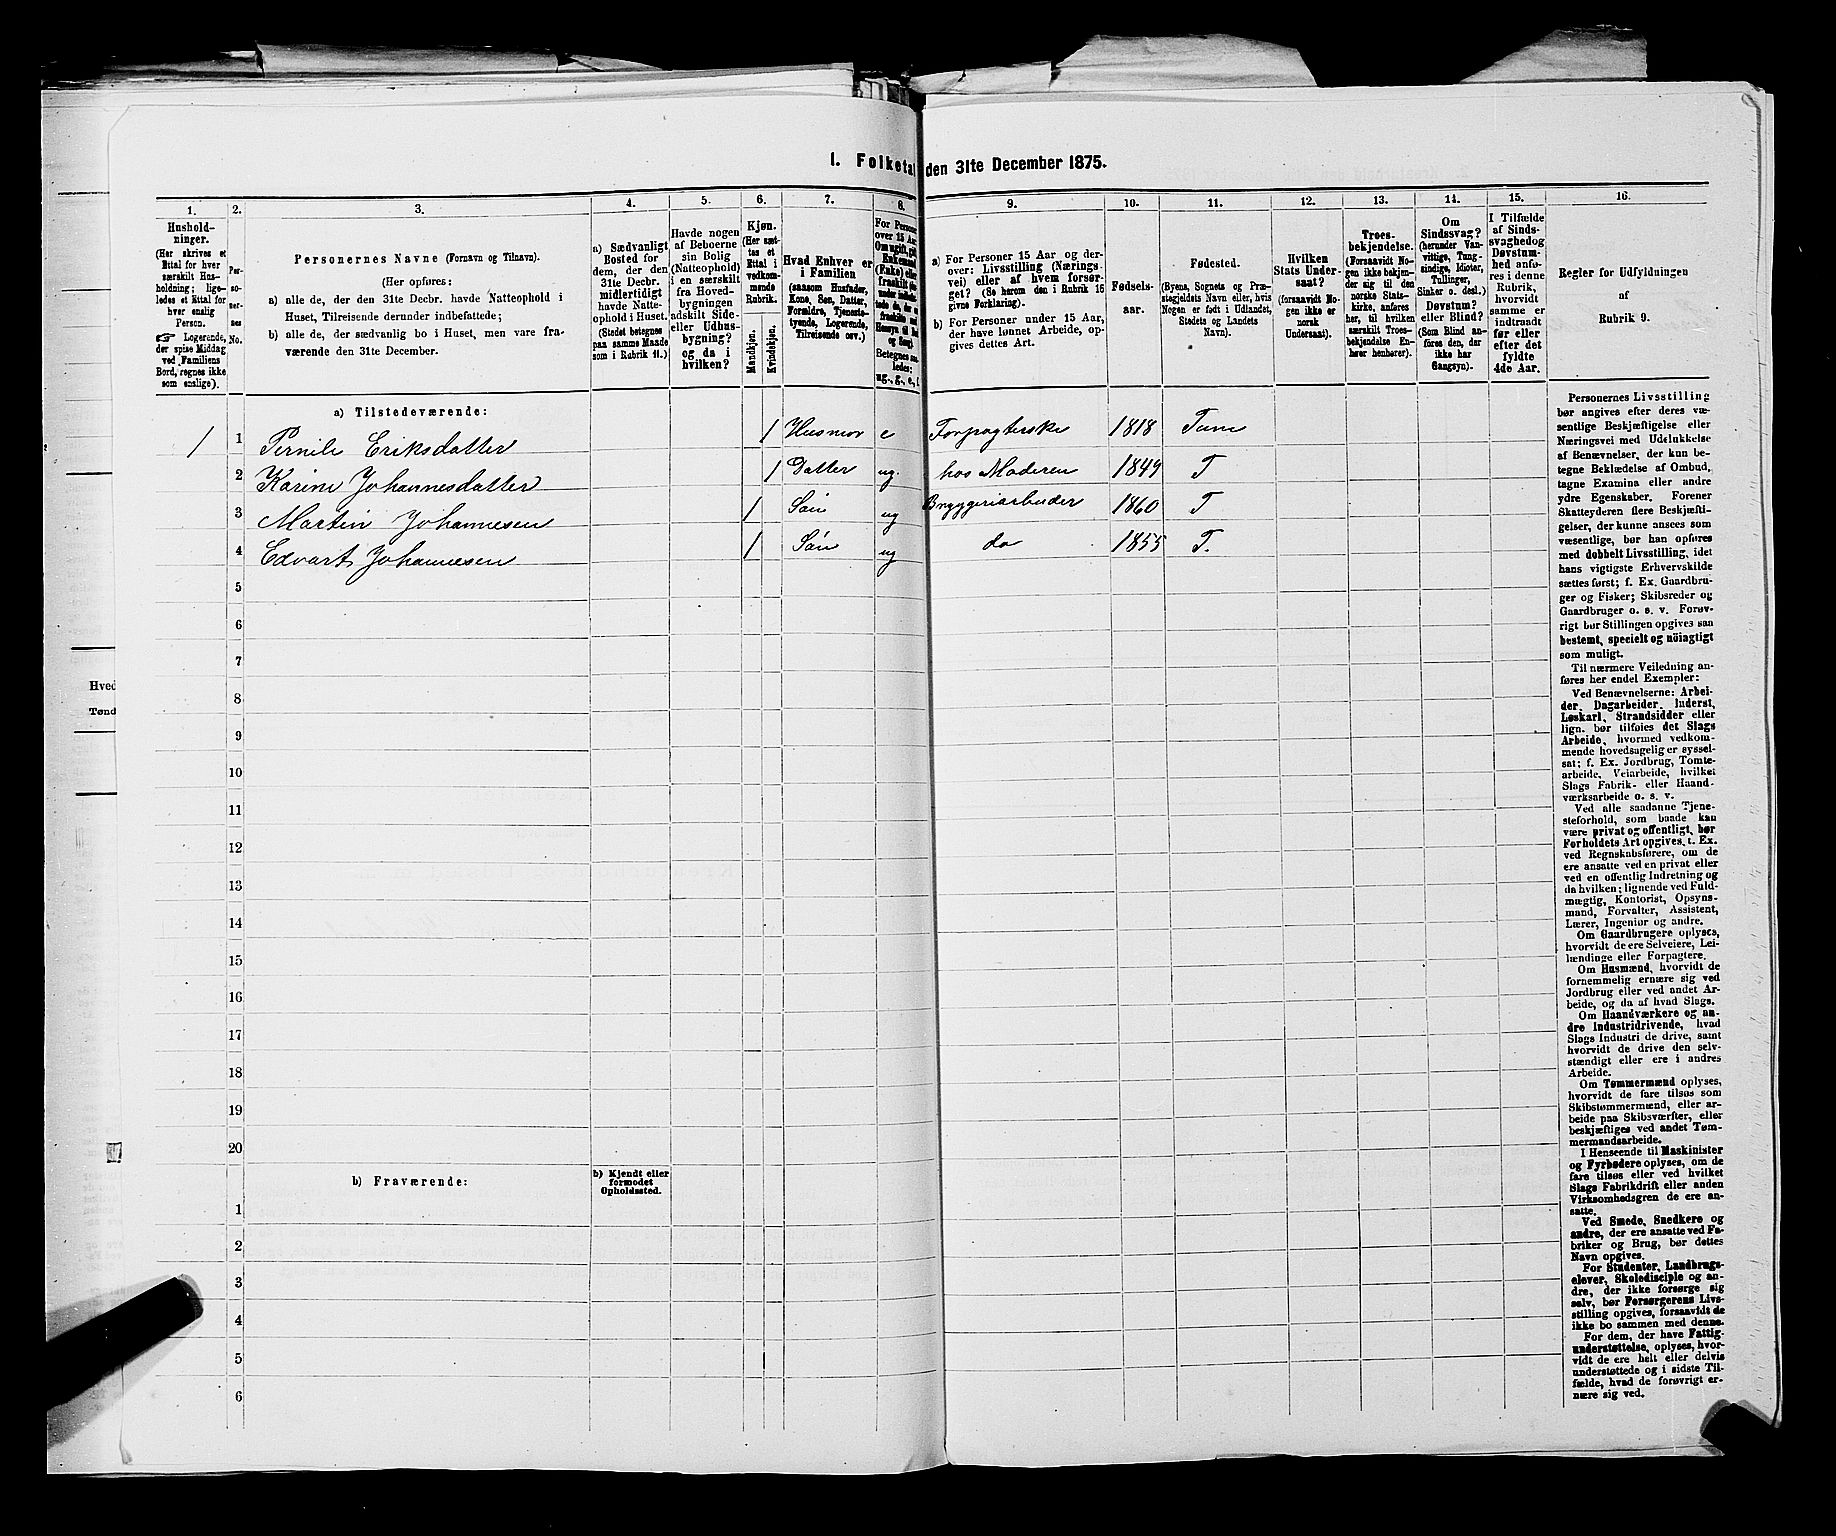 I. Folketal den 31te December 1875.
1.
Hushold-
ninger.
(Her skrives et
Ettal for hver
særskilt Hus-
holdning; lige-
ledes et Ettal for
hver enslig
Person.
☞ Logerende,
der spise Middag
ved Familiens
Bord, regnes ikke
som enslige).
2.
Per-
so-
ner-
nes
No.
3.
Personernes Navne (Fornavn og Tilnavn).
(Her opføres:
a) alle de, der den 31te Decbr. havde Natteophold i
Huset, Tilreisende derunder indbefattede;
b) alle de, der sædvanlig bo i Huset, men vare fra-
værende den 31te December.
4.
a) Sædvanligt
Bosted for
dem, der den
31te Decbr.
midlertidigt
havde Natte-
ophold i Huset.
(Stedet betegnes
paa samme Maade
som i Rubrik 11.)
5.
Havde nogen
af Beboerne
sin Bolig
(Natteophold)
i en særskilt
fra Hoved-
bygningen
adskilt Side-
eller Udhus-
bygning?
og da i
hvilken?
6.
Kjøn.
(Her sæt-
tes et
Ettal i
vedkom-
mende
Rubrik.
Mandkjøn.
Kvindekjøn.
7.
Hvad Enhver er
i Familien
(saasom Husfader,
Kone, Søn, Datter,
Forældre, Tjeneste-
tyende, Logerende,
Tilreisende osv.)
8.
For Person
over 15 Aar
Betegnes saa-
ledes:
ug., g., e.,
9.
a) For Personer 15 Aar og der-
over: Livsstilling (Nærings-
vei) eller af hvem forsør-
get? (Se herom den i Rubrik 16
givne Forklaring).
b) For Personer under 15 Aar,
der have lønnet Arbeide, op-
gives dettes Art.
10.
Fødsels-
aar.
11.
Fødested.
(Byens, Sognets og Præ-
stegjeldets Navn eller, hvis
Nogen er født i Udlandet,
Stedets og Landets
Navn).
12.
Hvilken
Stats Under-
saat?
(forsaavidt No-
gen ikke er
norsk
Undersaat).
13.
Troes-
bekjendelse.
(Forsaavidt No-
gen ikke bekjen-
der sig til den
norske Stats-
kirke, anføres
her, til hvilken
særskilt Troes-
bekjendelse En-
hver henhører).
14.
Om
Sindssvag?
(herunder Van-
vittige, Tung-
sindige, Idioter,
Tullinger,
Sinker o. desl.)
Døvstum?
eller Blind?
(Som Blind an-
føres den, der
ikke har
Gangsyn).
15.
I Tilfælde
af Sinds-
svaghed og
Døvstum-
hed anfø-
res i denne
Rubrik,
hvorvidt
samme er
indtraadt
før eller
efter det
fyldte
4de Aar.
16.
Regler for Udfyldningen
af
Rubrik 9.
a) Tilstedeværende:
1 1 Pernile Eriksdatter 1 Husmor e Forpagterske 1818 Tune
2 Karine Johannesdatter 1 Datter ug. hos Moderen 1849 T
3 Martin Johannesen 1 Søn ug Bryggeriarbeider 1860 T
4 Edvart Johannesen 1 Søn ug do 1855 T.
5
6
7
8
9
10
11
12
13
14
15
16
17
18
19
20
b) Fraværende:
b) Kjendt eller
formodet
Opholdssted.
1
2
3
4
5
6
Personernes Livsstilling
bør angives efter deres væ-
sentlige Beskjæftigelse eller
Næringsvei med Udelukkelse
af Benævnelser, der kun be-
tegne Beklædelse af Ombud,
tagne Examina eller andre
ydre Egenskaber. Forener
Skatteyderen flere Beskjæfti-
gelser, der kunne ansees som
væsentlige, bør han opføres
med dobbelt Livsstilling, idet
hans vigtigste Erhvervskilde
sættes først; f. Ex. Gaardbru-
ger og Fisker; Skibsreder og
Gaardbruger o. s. v. Forøv-
rigt bør Stillingen opgives saa
bestemt, specielt og nöiagtigt
som muligt.
Til nærmere Veiledning an-
føres her endel Exempler:
Ved Benævnelserne: Arbei-
der, Dagarbeider, Inderst,
Løskarl, Strandsidder eller
lign. bør tilføies det Slags
Arbeide, hvormed vedkom-
mende hovedsagelig er syssel-
sat; f. Ex. Jordbrug, Tomte-
arbeide, Veiarbeide, hvilket
Slags Fabrik- eller Haand-
værksarbeide o. s. v.
Ved alle saadanne Tjene-
steforhold, som baade kan
være privat og offentligt, bør
Forholdets Art opgives, f. Ex.
ved Regnskabsførere, om de
ere ansatte ved en privat eller
ved en offentlig Indretning og
da hvilken; lignende ved Fuld-
mægtig, Kontorist, Opsyns-
mand, Forvalter, Assistent,
Lærer, Ingeniør og andre.
Om Gaardbrugere oplyses,
hvorvidt de ere Selveiere, Lei-
lændinge eller Forpagtere.
Om Husmænd, hvorvidt de
fornemmelig ernære sig ved
Jordbrug eller ved andet Ar-
beide, og da af hvad Slags.
Om Haandværkere og an-
dre Industridrivende, hvad
Slags Industri de drive, samt
hvorvidt de drive den selv-
stændigt eller ere i andres
Arbeide.
Om Tømmermænd oplyses,
hvorvidt de fare tilsøs som
Skibstømmermænd, eller ar-
beide paa Skibsværfter, eller
beskjæftiges ved andet Tøm-
mermandsarbeide.
I Henseende til Maskinister
og Fyrbødere oplyses, om de
fare tilsøs eller ved hvilket
Slags Fabrikdrift eller anden
Virksomhedsgren de ere an-
satte.
Ved Smede, Snedkere og
andre, der ere ansatte ved Fa-
briker og Brug, bør dettes
Navn opgives.
For Studenter, Landbrugs-
elever, Skoledisciple og an-
dre, der ikke forsørge sig
selv, bør Forsørgerens Livs-
stilling opgives, forsaavidt de
ikke bo sammen med denne.
For dem, der have Fattig-
understøttelse, oplyses, hvor-
vidt de ere helt eller delvis
understøttede og i sidste Til-
fælde, hvad de forøvrigt er-
nære sig ved.
Hved
Tønd